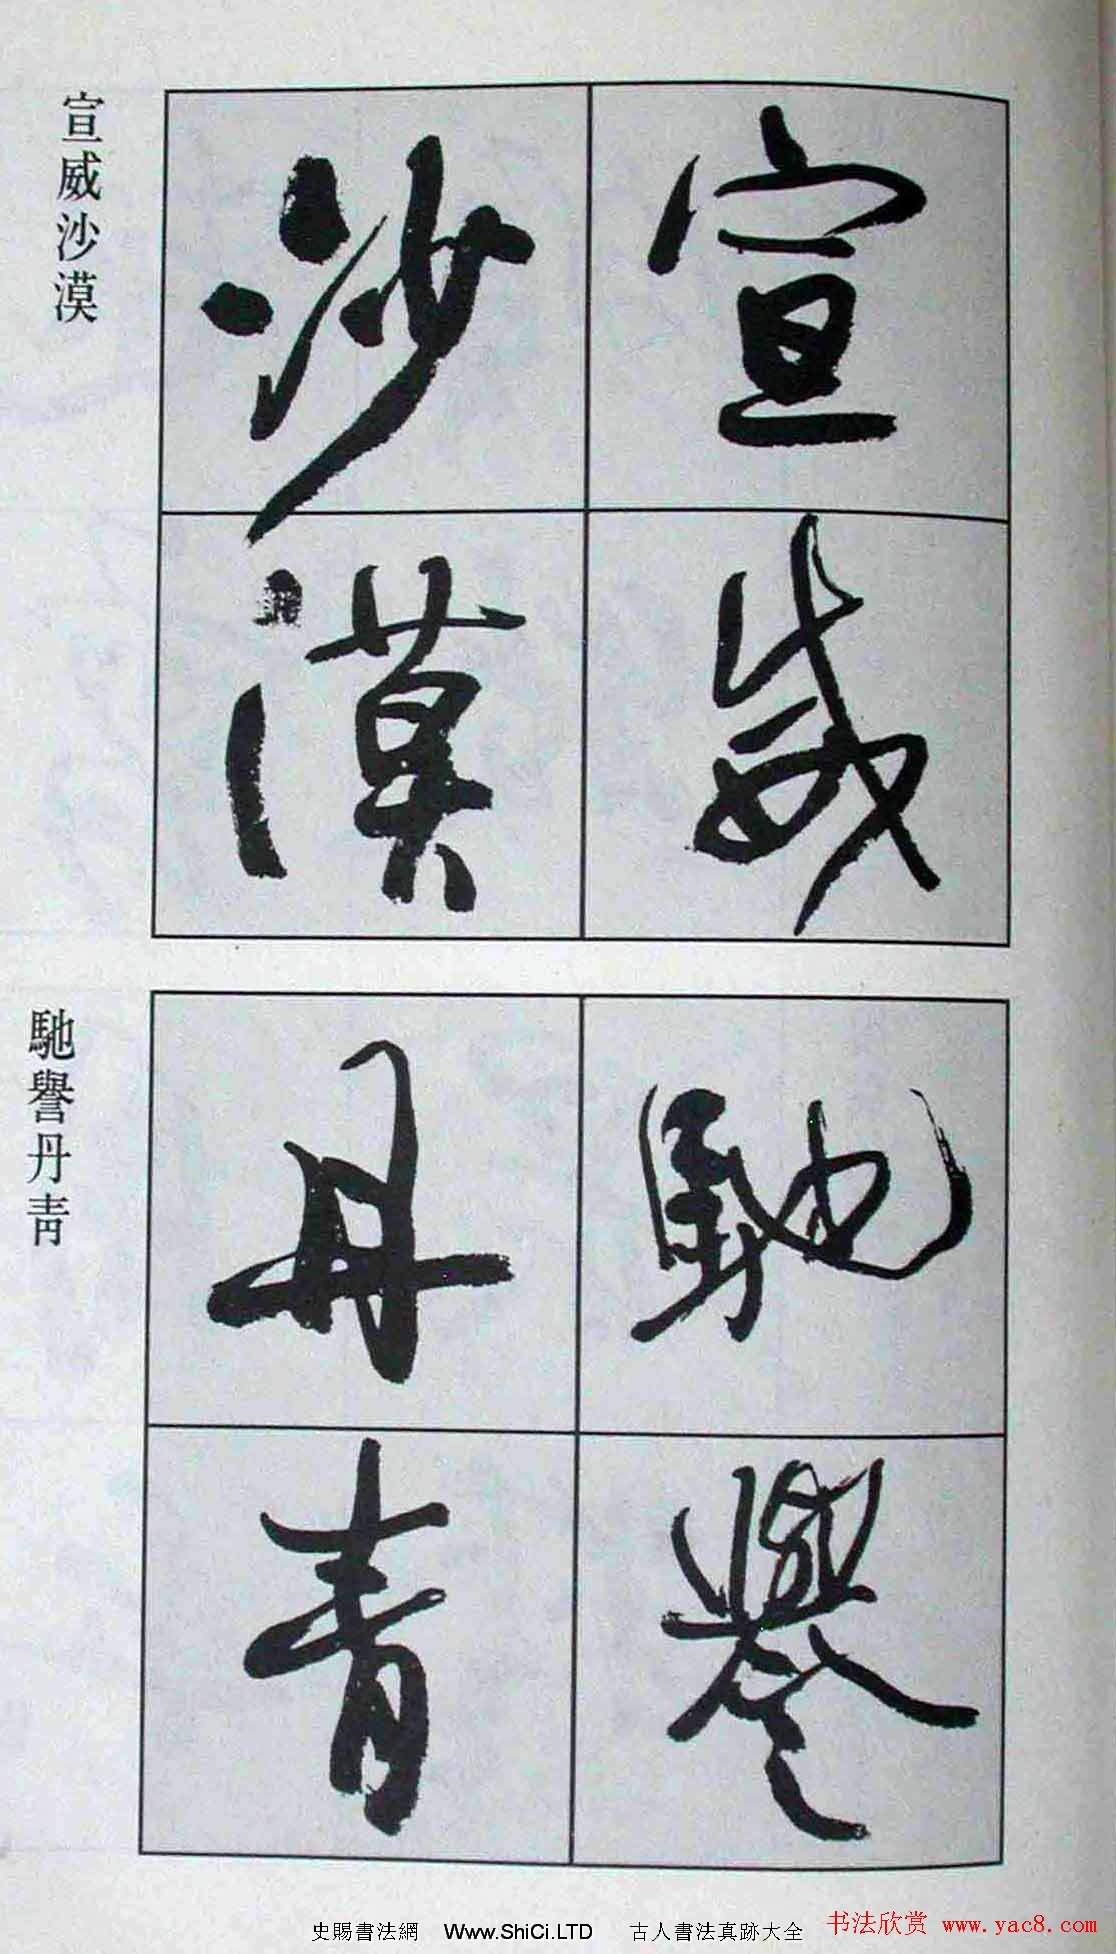 宣威
沙漠
宣威沙漠
馳譽
丹青
馳譽丹青
史賜書法網 Www.ShiCi.LTD 古人書法真跡大全
书法欣赏 www.yac8.com